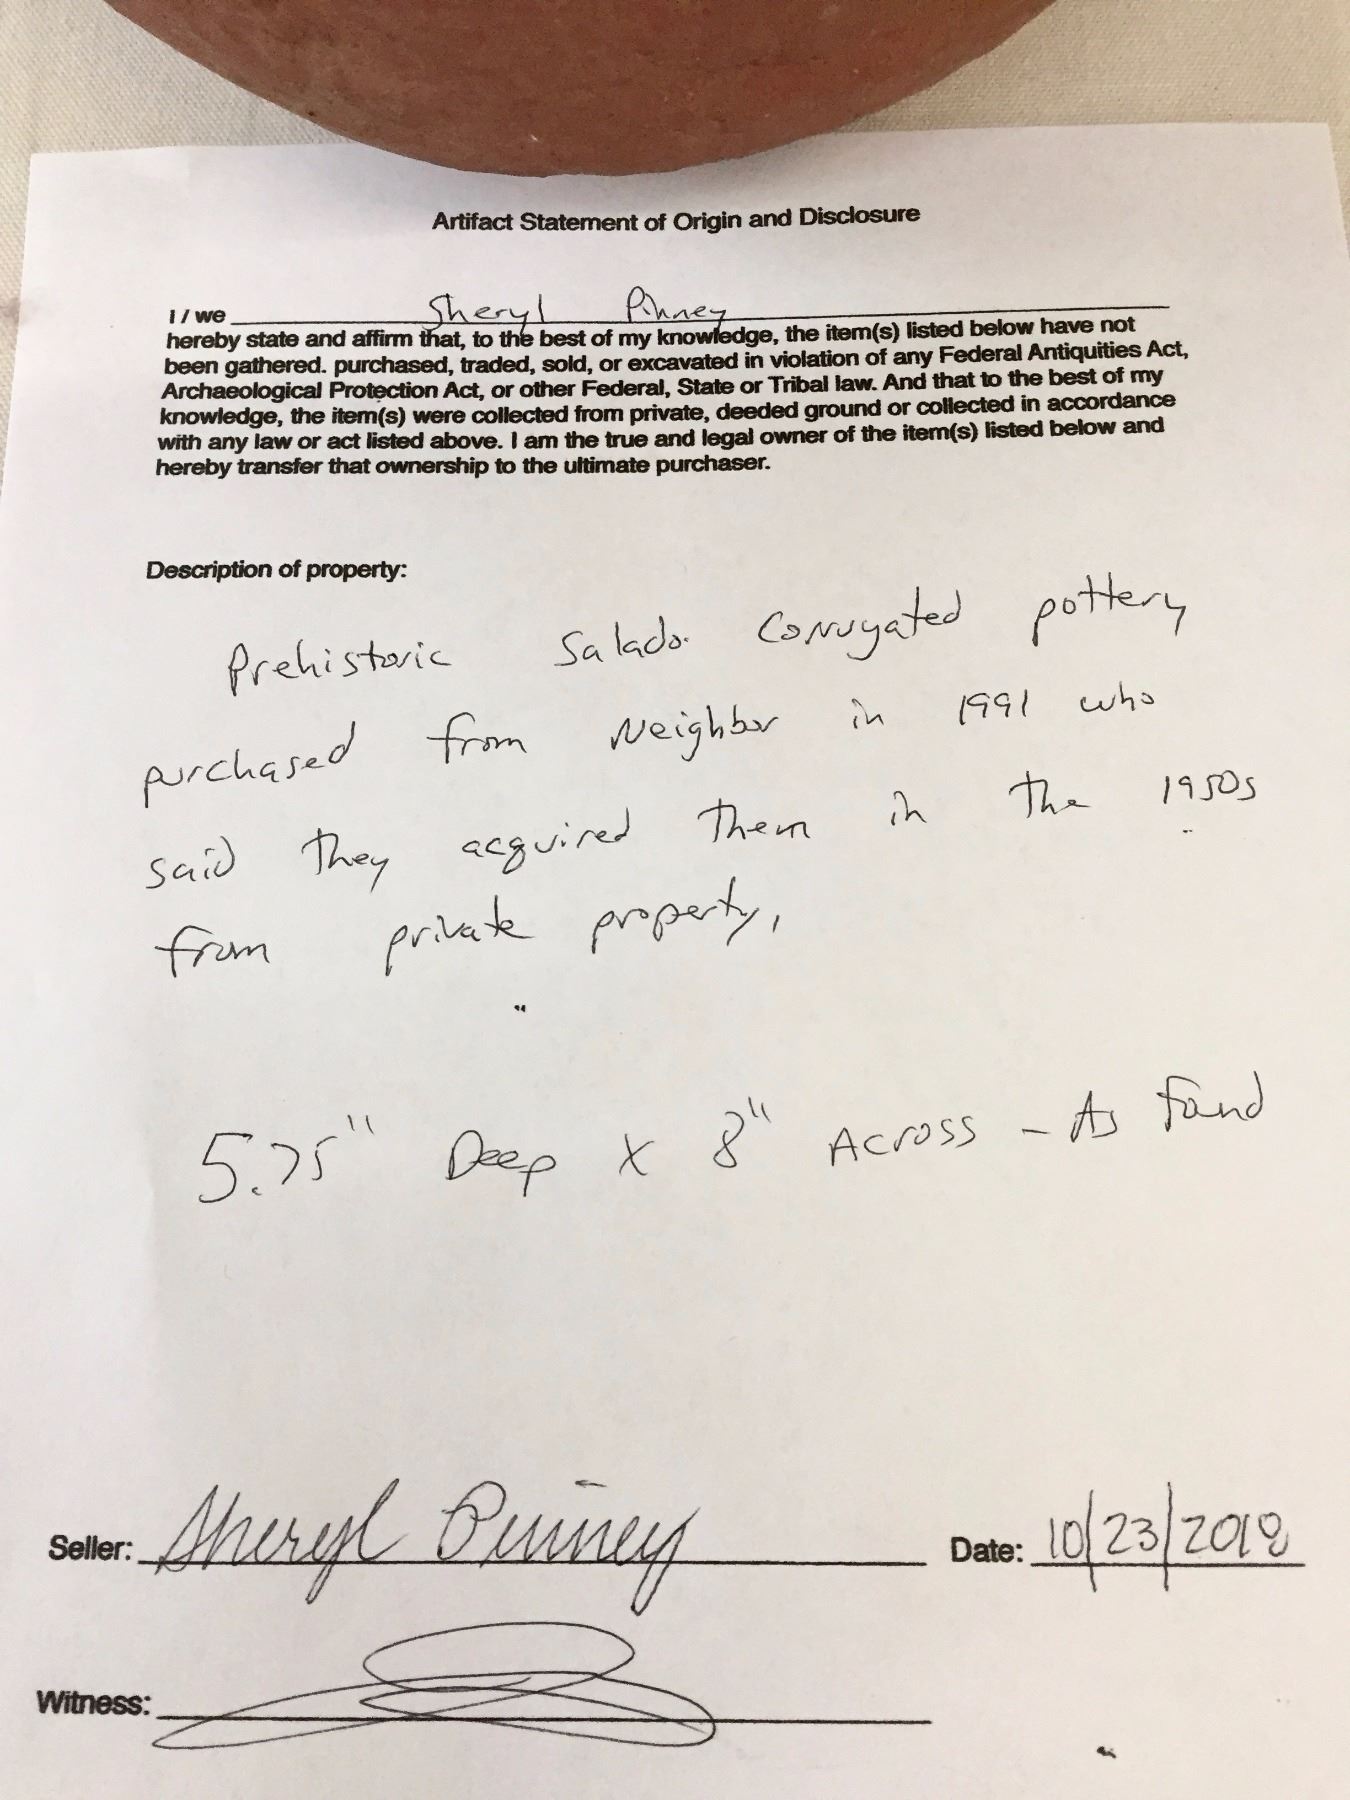 Artifact Statement of Origin and Disclosure
I / we Sheryl Pinney
hereby state and affirm that, to the best of my knowledge, the item(s) listed below have not
been gathered. purchased, traded, sold, or excavated in violation of any Federal Antiquities Act,
Archaeological Protection Act, or other Federal, State or Tribal law. And that to the best of my
knowledge, the item(s) were collected from private, deeded ground or collected in accordance
with any law or act listed above. I am the true and legal owner of the item(s) listed below and
hereby transfer that ownership to the ultimate purchaser.
Description of property:
Prehistoric Salado Corrugated pottery
purchased from Neighbor in 1991 who
said they acquired them in the 1950s
from private property,
5.75" Deep x 8" Across - As found
Seller: Sheryl Pinney Date: 10/23/2018
Witness: